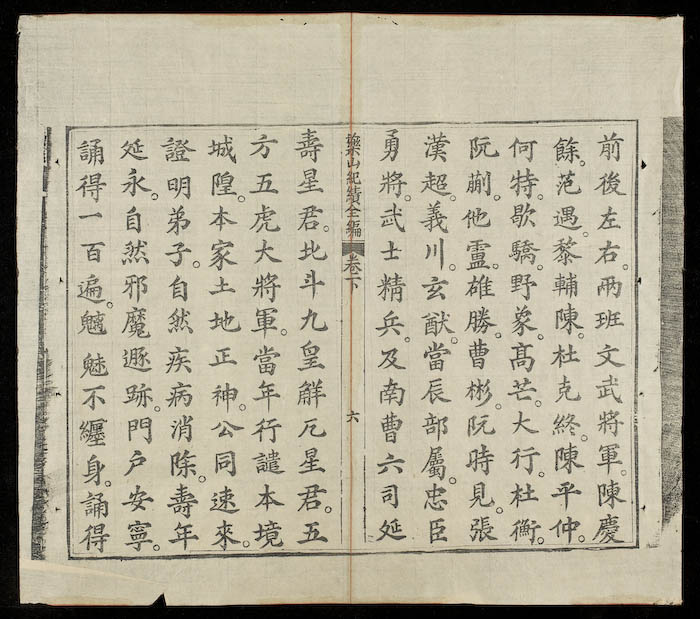 前後左右。兩班文武將軍。陳慶
餘。范遇。黎輔陳。杜克終。陳平仲。
何特。歇驕。野象。髙芒。大行。杜衡。
阮蒯。他靈。雄勝。曹彬。阮時見。張
漢超。義川。玄猷。當辰部屬。忠臣
勇將。武士精兵。及南曹六司延
藥山紀績全編 卷下 六
壽星君。北斗九皇觧厄星君。五
方五虎大將軍。當年行譴本境
城隍。本家土地正神。公同速來。
證明弟子。自然疾病消除。壽年
延永。自然邪魔遯跡。門戸安寧。
誦得一百遍。魑魅不纏身。誦得